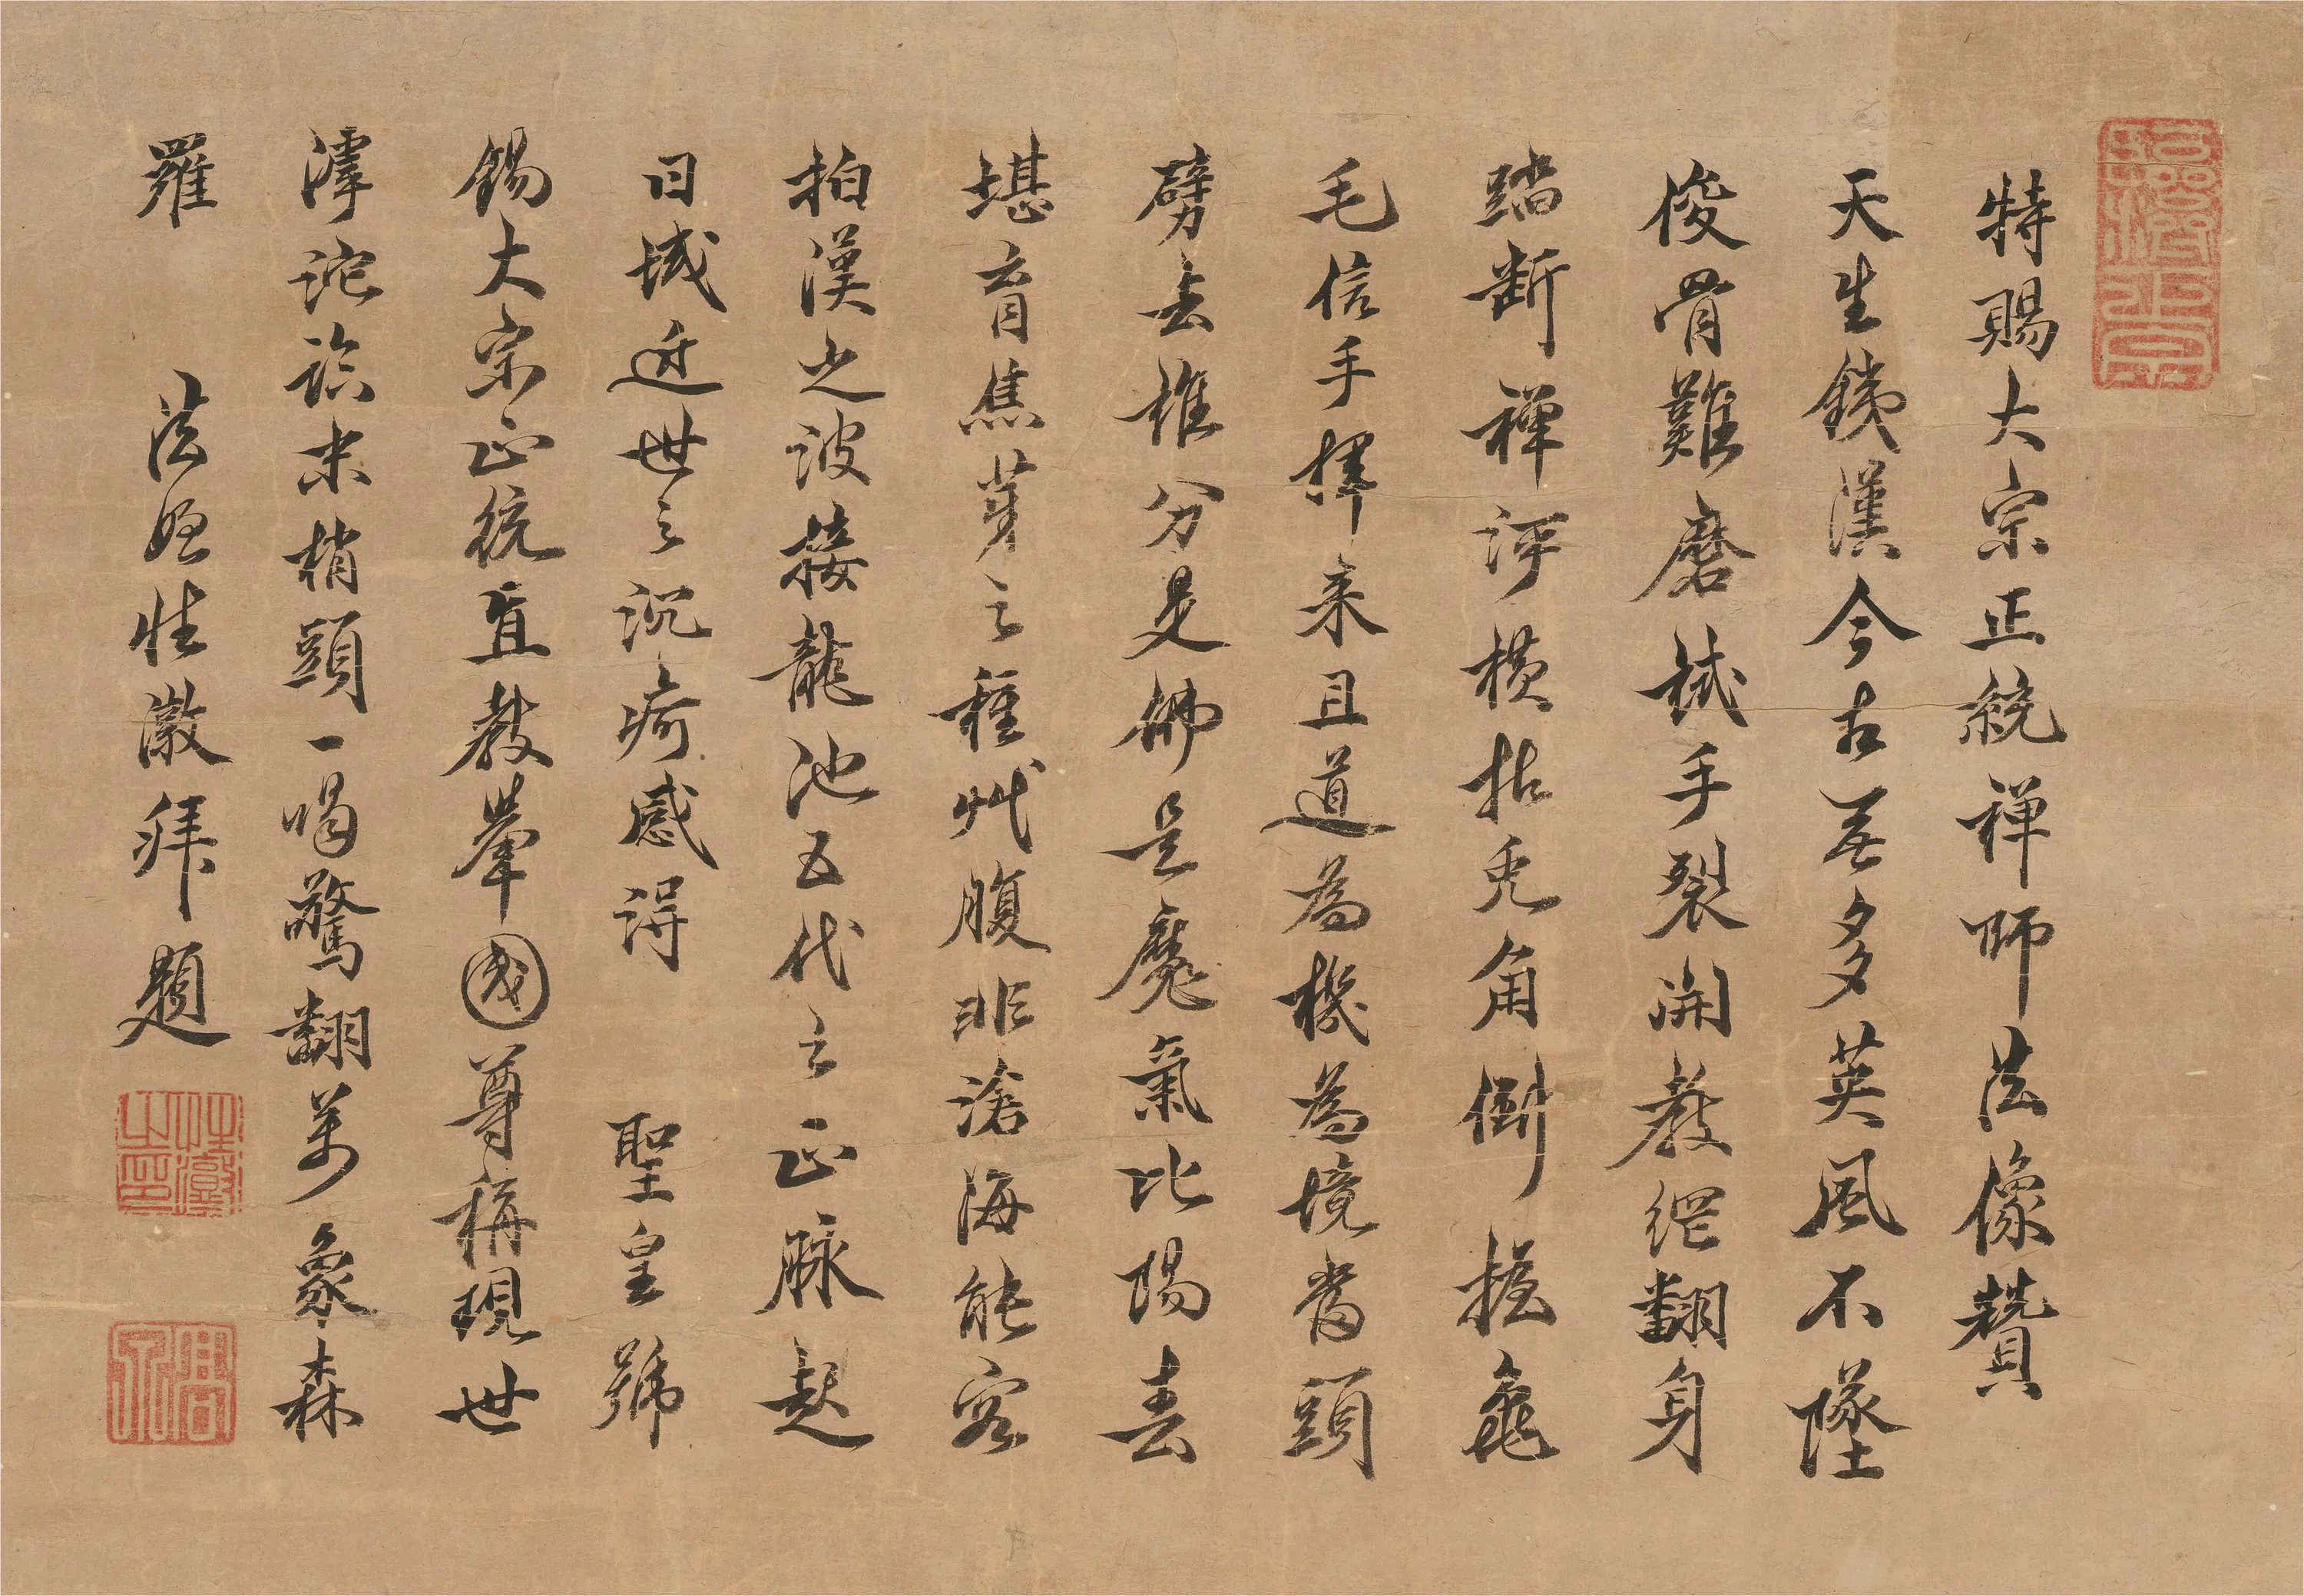 特賜大宗正統禪師法像贊
天生鐵漢今古無多英風不墜
俊骨難磨試手裂開教網翻身
踏斷禪評橫拈兎角倒握龜
毛信手揮来且道為機為境當頭
劈去誰分是佛是魔氣比陽春
堪育焦芽之種艸腹非滄海能容
拍漢之波接龍池五代之正脉起
日域近世之沉痾感得　聖皇號
錫大宗正統直教舉國尊稱現世
滹沱論末梢頭一喝驚翻萬象森
羅　法姪性潡拜題
性潡之印